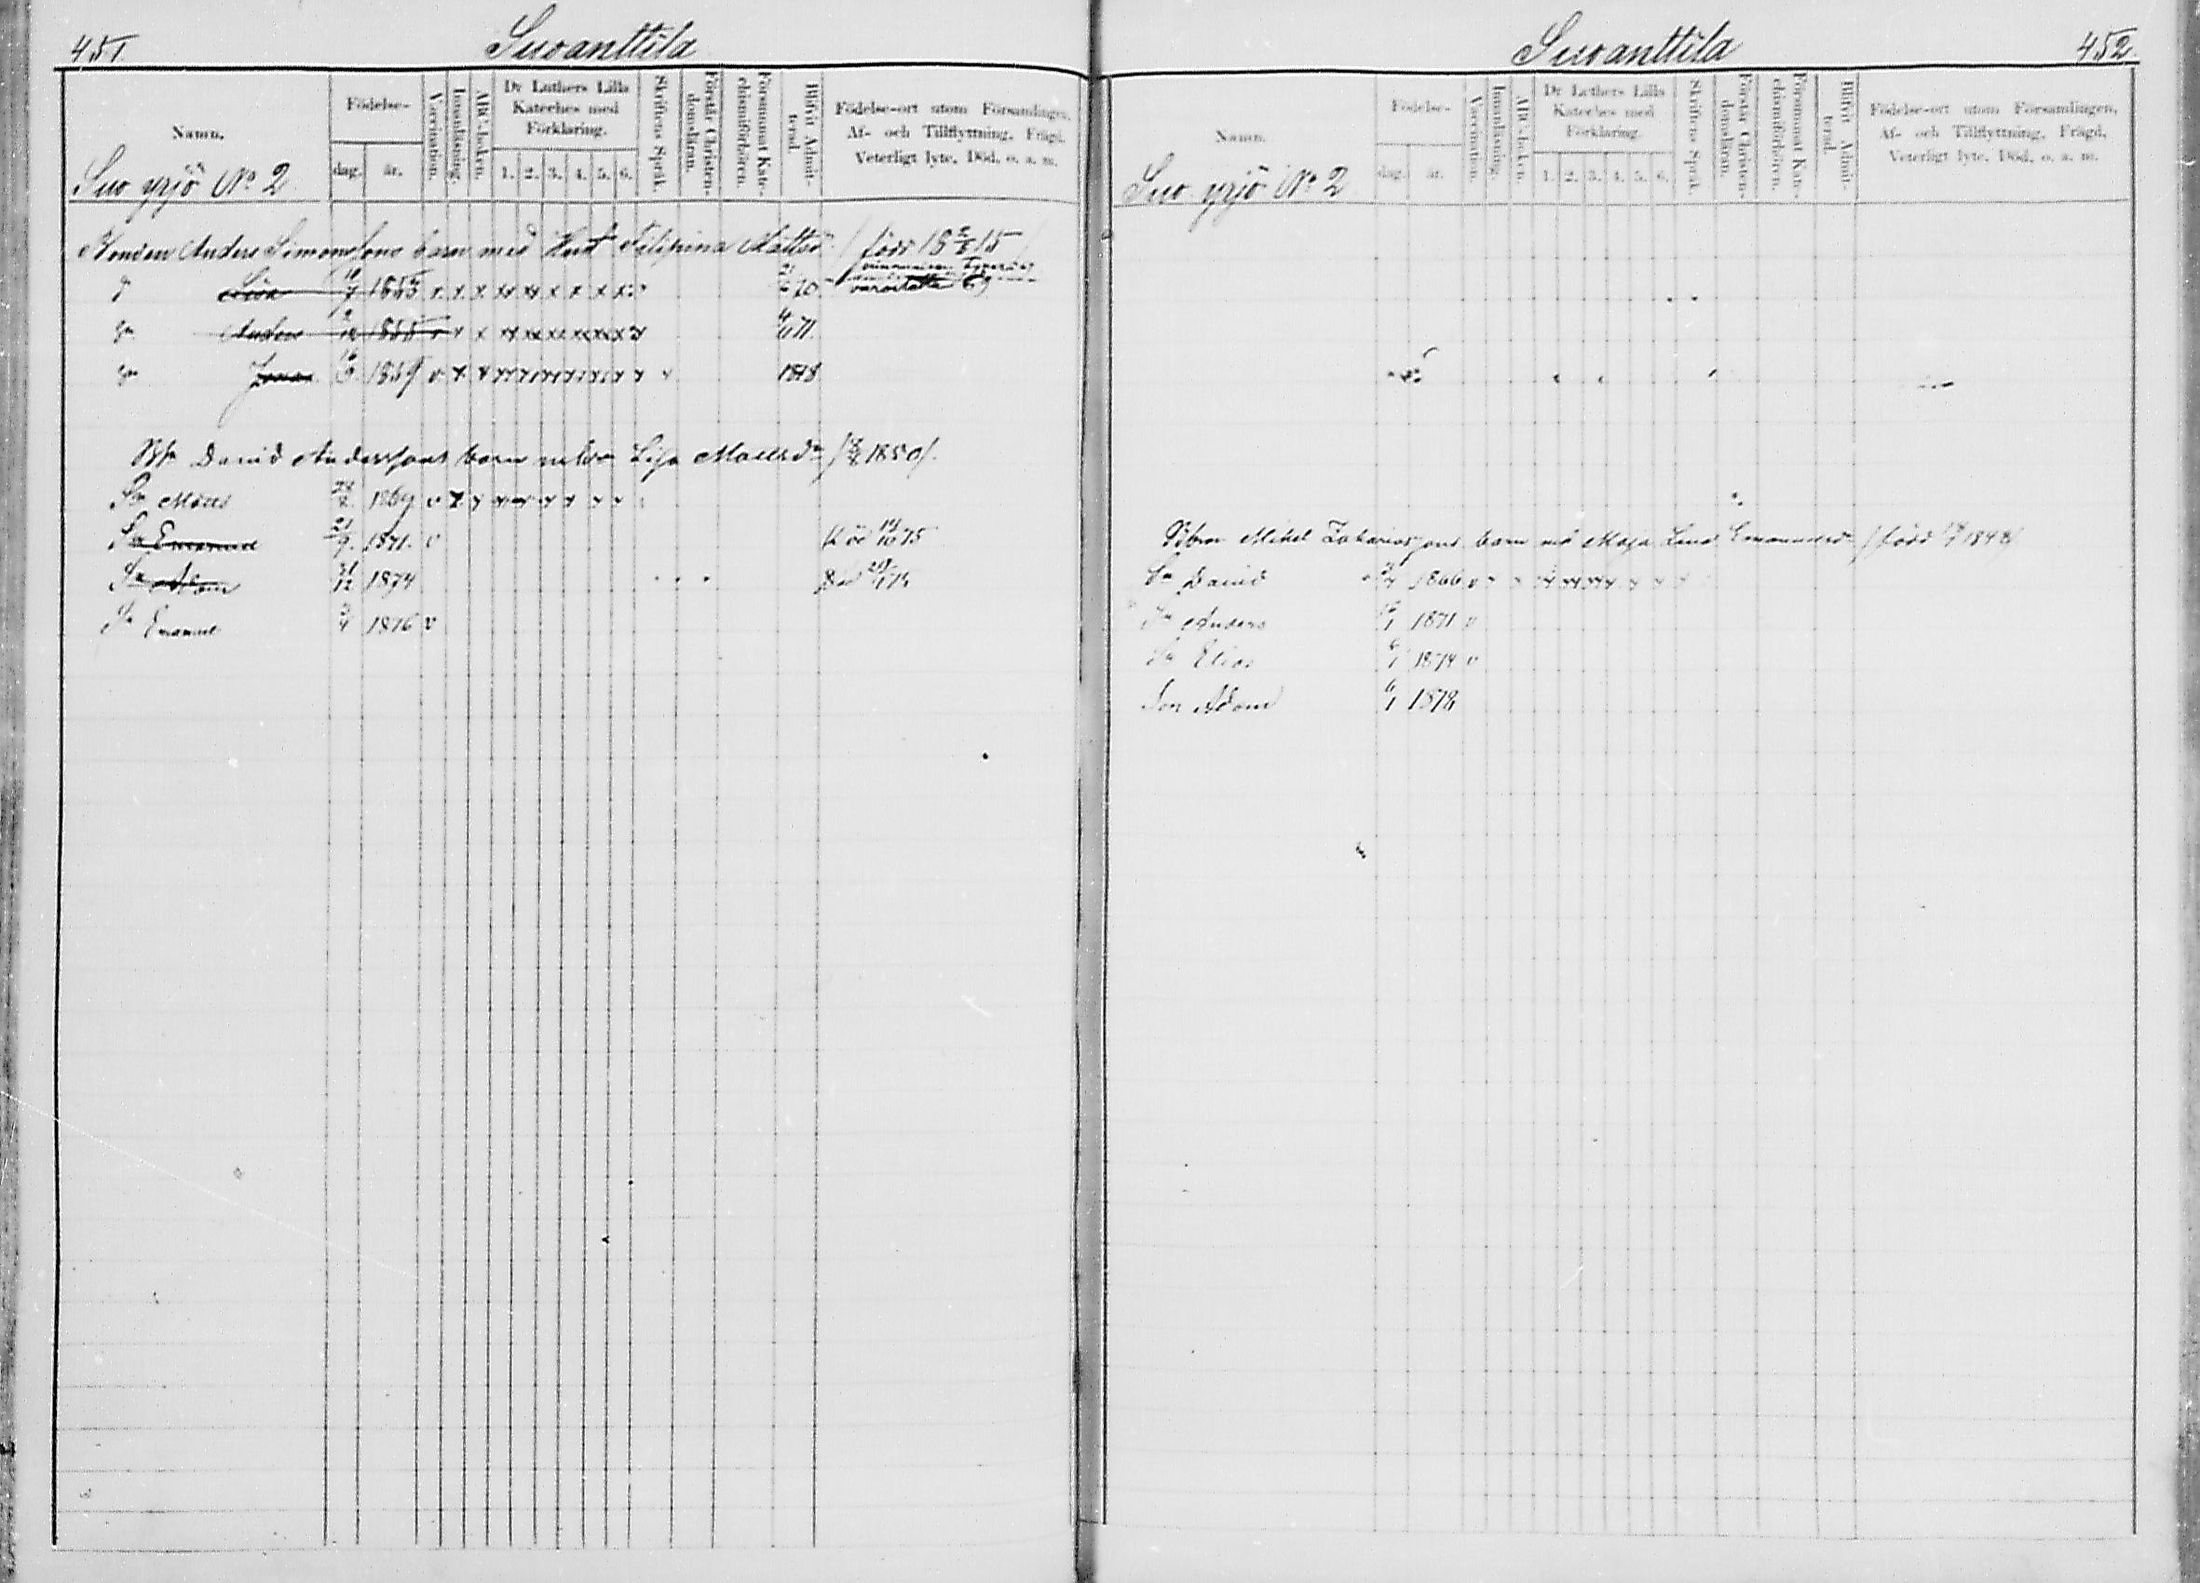 451. Suoanttila
Namn. Födelse- dag. år. Vaccination. Innanläsning. ABC-boken. Dr Luthers Lilla Kateches med Förklaring. 1. 2. 3. 4. 5. 6. Skriftens Språk. Förstår Christendomsläran. Försummat Katechismiförhören. Blifvit Admitterad. Födelse-ort utom Församlingen, Af- och Tillflyttning, Frägd, Veterligt lyte, Död, o. a. m.
Suo yrjö No 2
Bonden Anders Simonssons barn med Hust Filippina Mattsd. (född 18 2/8 15)
d Lisa 10/7 1853 v. x x xx xx x x x x 21/6 70
Sn Anders 2/12 1855 v x x xx xx xx xx xx x 4/6 71.
Sn Jonas 16/9 1859 v. x x xx xx xx xx xx x x x 1878
David Anderssons barn Lisa Mattsdr 1850/.
Sn Matts 28/2 1869 v x x
Sn Emanuel 21/9. 1871. v Död 14/10 75
Sn Adam 31/12 1874 Död
Sn Emanuel 3/4 1876 v
Suoanttila 452.
Namn. Födelse- dag. år. Vaccination. Innanläsning. ABC-boken. Dr Luthers Lilla Kateches med Förklaring. 1. 2. 3. 4. 5. 6. Skriftens Språk. Förstår Christendomsläran. Försummat Katechismiförhören. Blifvit Admitterad. Födelse-ort utom Församlingen, Af- och Tillflyttning, Frägd, Veterligt lyte, Död, o. a. m.
Suo yrjö No 2
Mikel Zakariassons barn Maja Lena Emanuelsd (född 1848)
Sn David 1866 v
Sn Anders 1871 v
Sn Elias 6/1 1874 v
Son Adam 6/1 1878